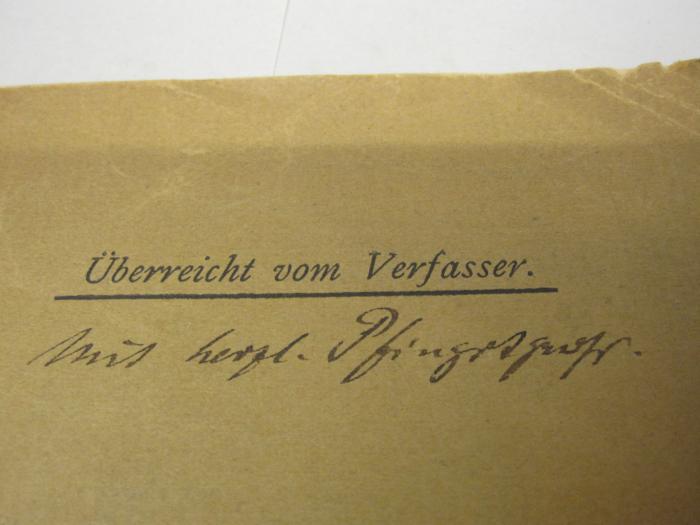 Überreicht vom Verfasser.
Mit herzl. Pfingstgruß.